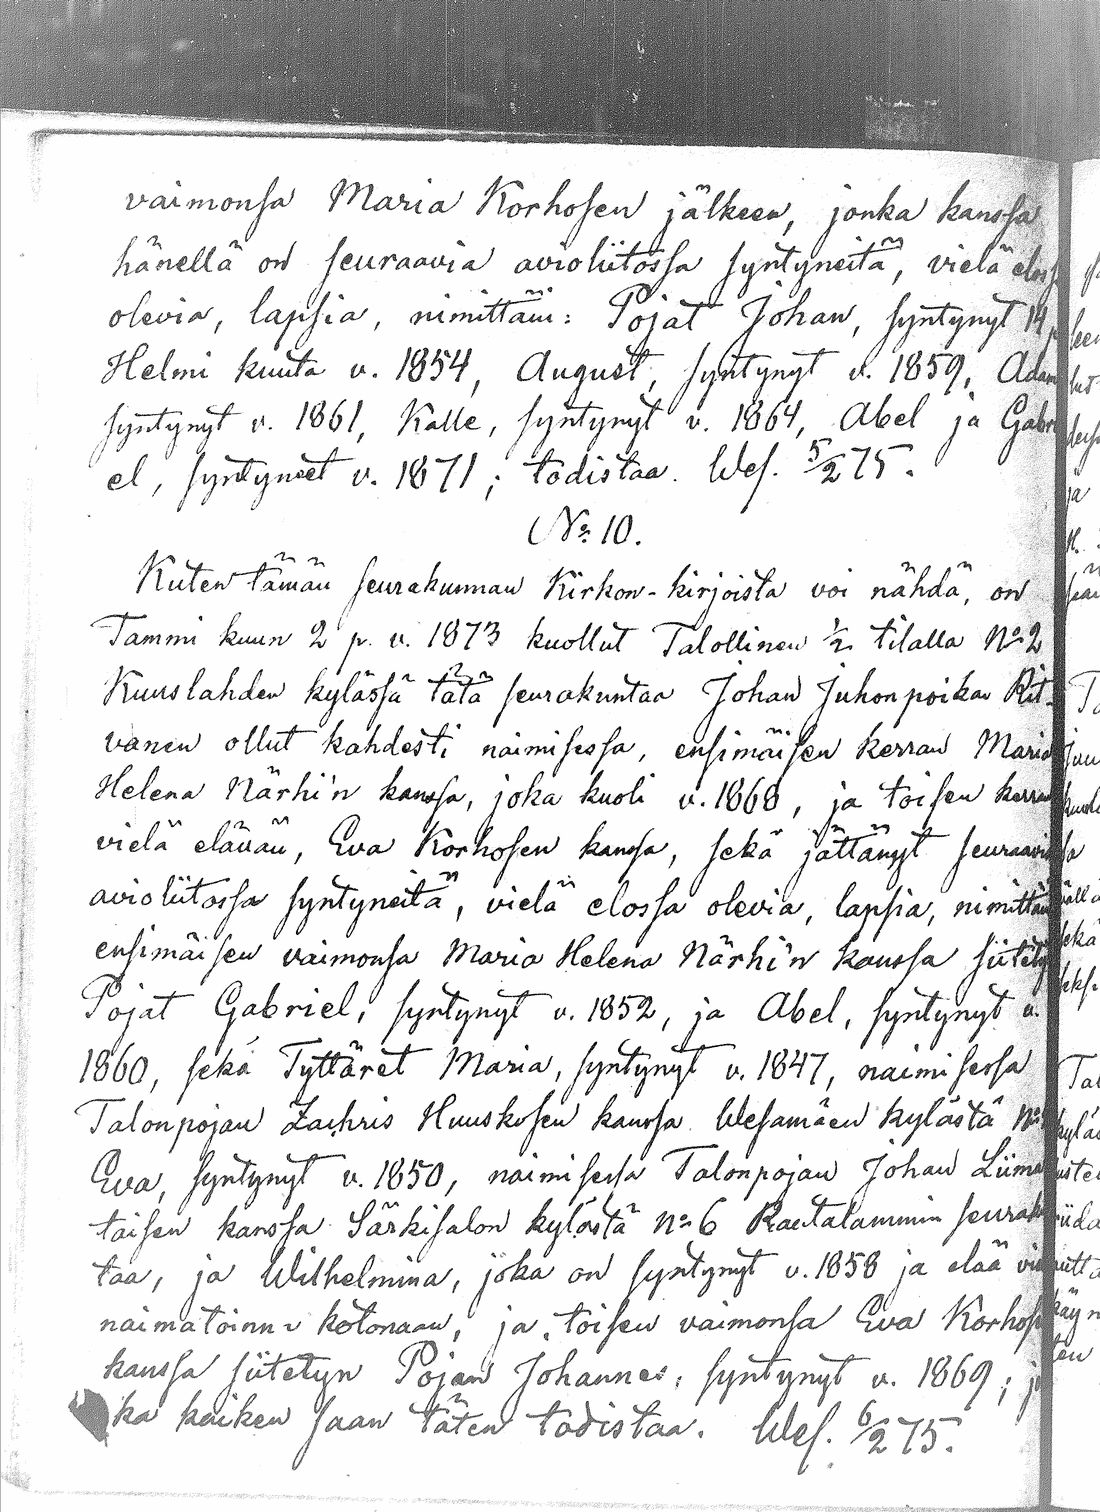 vaimonsa Maria Korhosen jälkeen, jonka kanssa
hänellä on seuraavia avioliitossa syntyneitä, vielä eloss
olevia, lapsia, nimittäin: Pojat Johan, syntynyt 14 p
Helmi kuuta v. 1854, August, syntynyt v. 1859, Adam
syntynyt v. 1861, Kalle, syntynyt v. 1864, Abel ja Gabri
el, syntyneet v. 1871; todistaa. Wes. 5/2 75.
No 10.
Kuten tämän seurakunnan Kirkon-kirjoista voi nähdä, on
Tammi kuun 2 p. v. 1873 kuollut Talollinen 1/2 tilalla No 2
Kuuslahden kylässä tätä seurakuntaa Johan Juhonpoika Rit-
vanen ollut kahdesti naimisessa, ensimäisen kerran Maria
Helena Närhi'n kanssa, joka kuoli v. 1868, ja toisen kerran
vielä elävän, Eva Korhosen kanssa, sekä jättänyt seuraavia
avioliitossa syntyneitä, vielä elossa olevia, lapsia, nimittäin
ensimäisen vaimonsa Maria Helena Närhi'n kanssa siitety
Pojat Gabriel, syntynyt v. 1852, ja Abel, syntynyt v.
1860, sekä Tyttäret Maria, syntynyt v. 1847, naimisessa
Talonpojan Zachris Huuskosen kanssa Wesamäen kylästä No
Eva, syntynyt v. 1850, naimisessa Talonpojan Johan Liima
taisen kanssa Särkisalon kylästä No 6 Rautalammin seurak
taa, ja Wilhelmina, joka on syntynyt v. 1858 ja elää vie
naimatoinna kotonaan, ja toisen vaimonsa Eva Korhos
kanssa siitetyn Pojan Johannes, syntynyt v. 1869; jo
ka kaiken saan täten todistaa. Wes. 6/2 75.